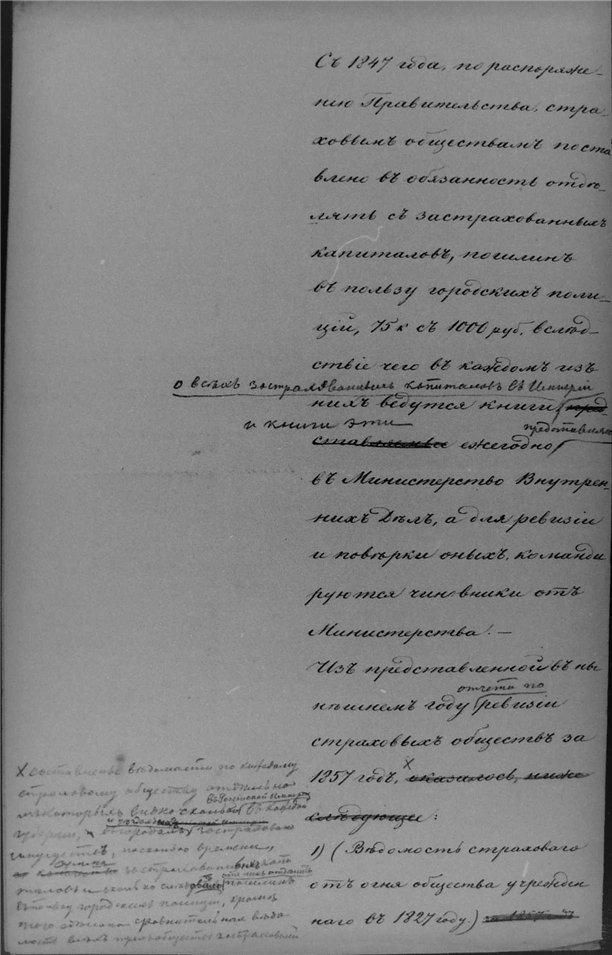 Съ 1847 года, по распоряже-
нію Правительства, стра-
ховымъ обществамъ поста
влено въ обязанность отдѣ-
лять съ застрахованныхъ
капиталовъ, пошлинъ
въ пользу городскихъ поли-
цій, 75 к съ 1000 руб, вслѣд-
ствіе чего въ каждомъ изъ
о всѣхъ застрахованныхъ капиталовъ въ Имперіи
нихъ ведутся книги,
и книги эти представляются
ежегодно
въ Министерство Внутрен-
нихъ Дѣлъ, а для ревизіи
и повѣрки оныхъ, команди
руются чиновники отъ
Министерства. —
Изъ представленной въ ны
отчета по
нѣшнемъ году ревизіи
страховыхъ обществъ за
1857 годъ, оказалось, ниже
слѣдующее:
1) (Вѣдомость страховаго
отъ огня общества учрежден
наго въ 1827 году.)
X составленные вѣдомости по каждому
страховому обществу отдѣльно
изъ которыхъ видно сколько въ каждой
губерніи, городамъ застраховано
имуществъ,
застрахованныхъ капи
таловъ и пошлинъ
въ пользу городскихъ полицій, кромѣ
того сравнительная вѣдо
мость всѣхъ